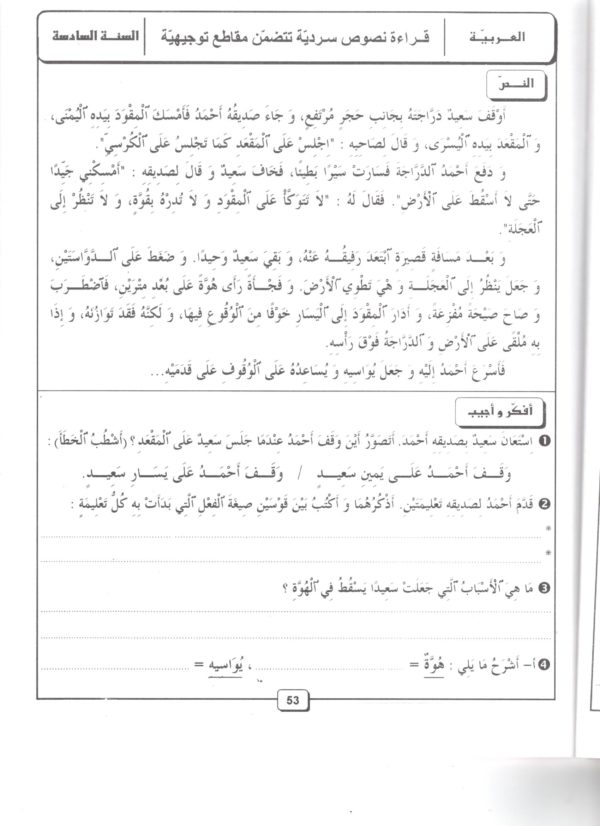 العربيّة
قراءة نصوص سرديّة تتضمّن مقاطع توجيهيّة
السنة السادسة
النصّ
أَوْقَفَ سَعِيدٌ دَرَّاجَتَهُ بِجَانِبِ حَجَرٍ مُرْتَفِعٍ، وَ جَاءَ صَدِيقُهُ أَحْمَدُ فَأَمْسَكَ ٱلْمِقْوَدَ بِيَدِهِ ٱلْيُمْنَى،
وَ ٱلْمَقْعَدَ بِيَدِهِ ٱلْيُسْرَى، وَ قَالَ لِصَاحِبِهِ : "اِجْلِسْ عَلَى ٱلْمَقْعَدِ كَمَا تَجْلِسُ عَلَى ٱلْكُرْسِيِّ".
وَ دَفَعَ أَحْمَدُ ٱلدَّرَّاجَةَ فَسَارَتْ سَيْرًا بَطِيئًا، فَخَافَ سَعِيدٌ وَ قَالَ لِصَدِيقِهِ : "أَمْسِكْنِي جَيِّدًا
حَتَّى لاَ أَسْقُطَ عَلَى ٱلْأَرْضِ". فَقَالَ لَهُ : "لاَ تَتَوَكَّأْ عَلَى ٱلْمِقْوَدِ وَ لاَ تُدِرْهُ بِقُوَّةٍ، وَ لاَ تَنْظُرْ إِلَى
ٱلْعَجَلَةِ".
وَ بَعْدَ مَسَافَةٍ قَصِيرَةٍ ٱبْتَعَدَ رَفِيقُهُ عَنْهُ، وَ بَقِيَ سَعِيدٌ وَحِيدًا. وَ ضَغَطَ عَلَى ٱلدَّوَّاسَتَيْنِ،
وَ جَعَلَ يَنْظُرُ إِلَى ٱلْعَجَلَةِ وَ هِيَ تَطْوِي ٱلْأَرْضَ. وَ فَجْأَةً رَأَى هُوَّةً عَلَى بُعْدِ مِتْرَيْنِ، فَٱضْطَرَبَ
وَ صَاحَ صَيْحَةً مُفْزِعَةً، وَ أَدَارَ ٱلْمِقْوَدَ إِلَى ٱلْيَسَارِ خَوْفًا مِنَ ٱلْوُقُوعِ فِيهَا، وَ لَكِنَّهُ فَقَدَ تَوَازُنَهُ، وَ إِذَا
بِهِ مُلْقًى عَلَى ٱلْأَرْضِ وَ ٱلدَّرَّاجَةُ فَوْقَ رَأْسِهِ.
فَأَسْرَعَ أَحْمَدُ إِلَيْهِ وَ جَعَلَ يُوَاسِيهِ وَ يُسَاعِدُهُ عَلَى ٱلْوُقُوفِ عَلَى قَدَمَيْهِ...
أفكّر و أجيب
1 اِسْتَعَانَ سَعِيدٌ بِصَدِيقِهِ أَحْمَدَ. أَتَصَوَّرُ أَيْنَ وَقَفَ أَحْمَدُ عِنْدَمَا جَلَسَ سَعِيدٌ عَلَى ٱلْمَقْعَدِ ؟ (أَشْطُبُ ٱلْخَطَأَ) :
وَقَفَ أَحْمَدُ عَلَى يَمِينِ سَعِيدٍ / وَقَفَ أَحْمَدُ عَلَى يَسَارِ سَعِيدٍ.
2 قَدَّمَ أَحْمَدُ لِصَدِيقِهِ تَعْلِيمَتَيْنِ. أَذْكُرُهُمَا وَ أَكْتُبُ بَيْنَ قَوْسَيْنِ صِيغَةَ ٱلْفِعْلِ ٱلَّتِي بَدَأَتْ بِهِ كُلُّ تَعْلِيمَةٍ :
*
*
3 مَا هِيَ ٱلْأَسْبَابُ ٱلَّتِي جَعَلَتْ سَعِيدًا يَسْقُطُ فِي ٱلْهُوَّةِ ؟
4 أ- أَشْرَحُ مَا يَلِي : هُوَّةٌ = ، يُوَاسِيهِ =
53